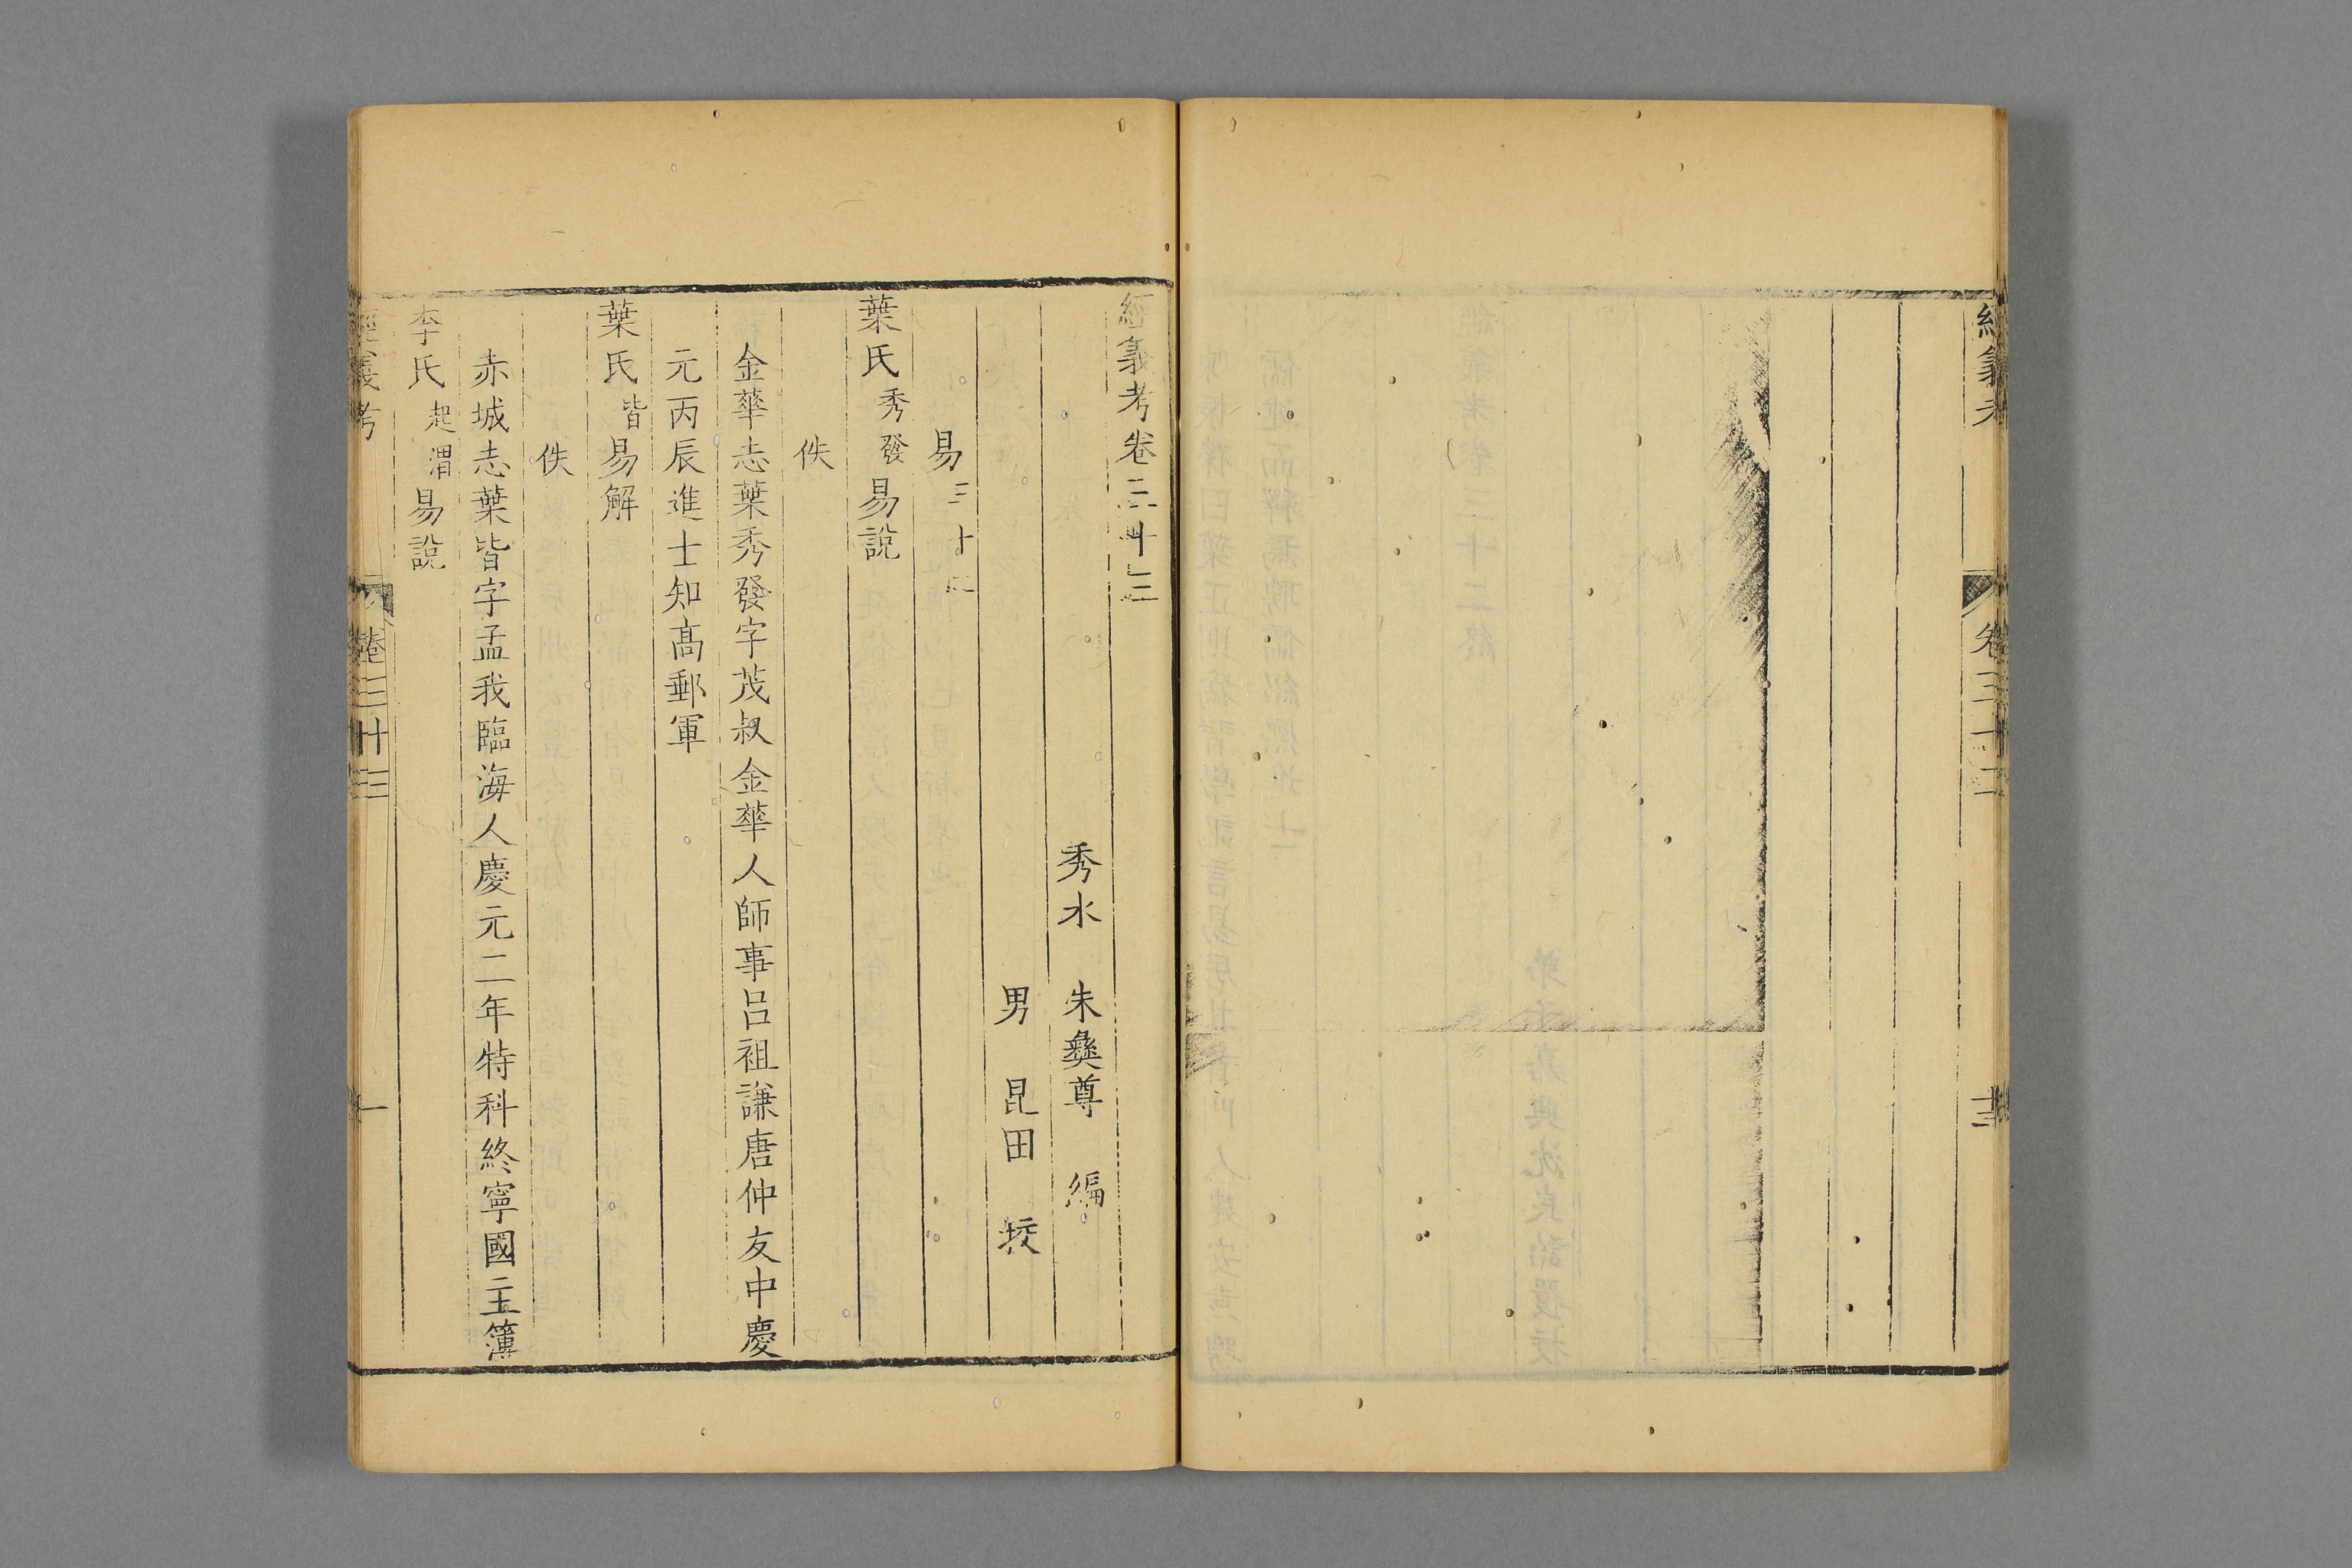 經義考
卷三十二
十三
經義考卷三十三
秀水 朱彝尊 編
男 昆田 挍
易三十二
葉氏秀發易說
佚
金華志葉秀發字茂叔金華人師事呂祖謙唐仲友中慶
元丙辰進士知高郵軍
葉氏皆易解
佚
赤城志葉皆字孟我臨海人慶元二年特科終寧國主簿
李氏起渭易說
經義考
卷三十三
一